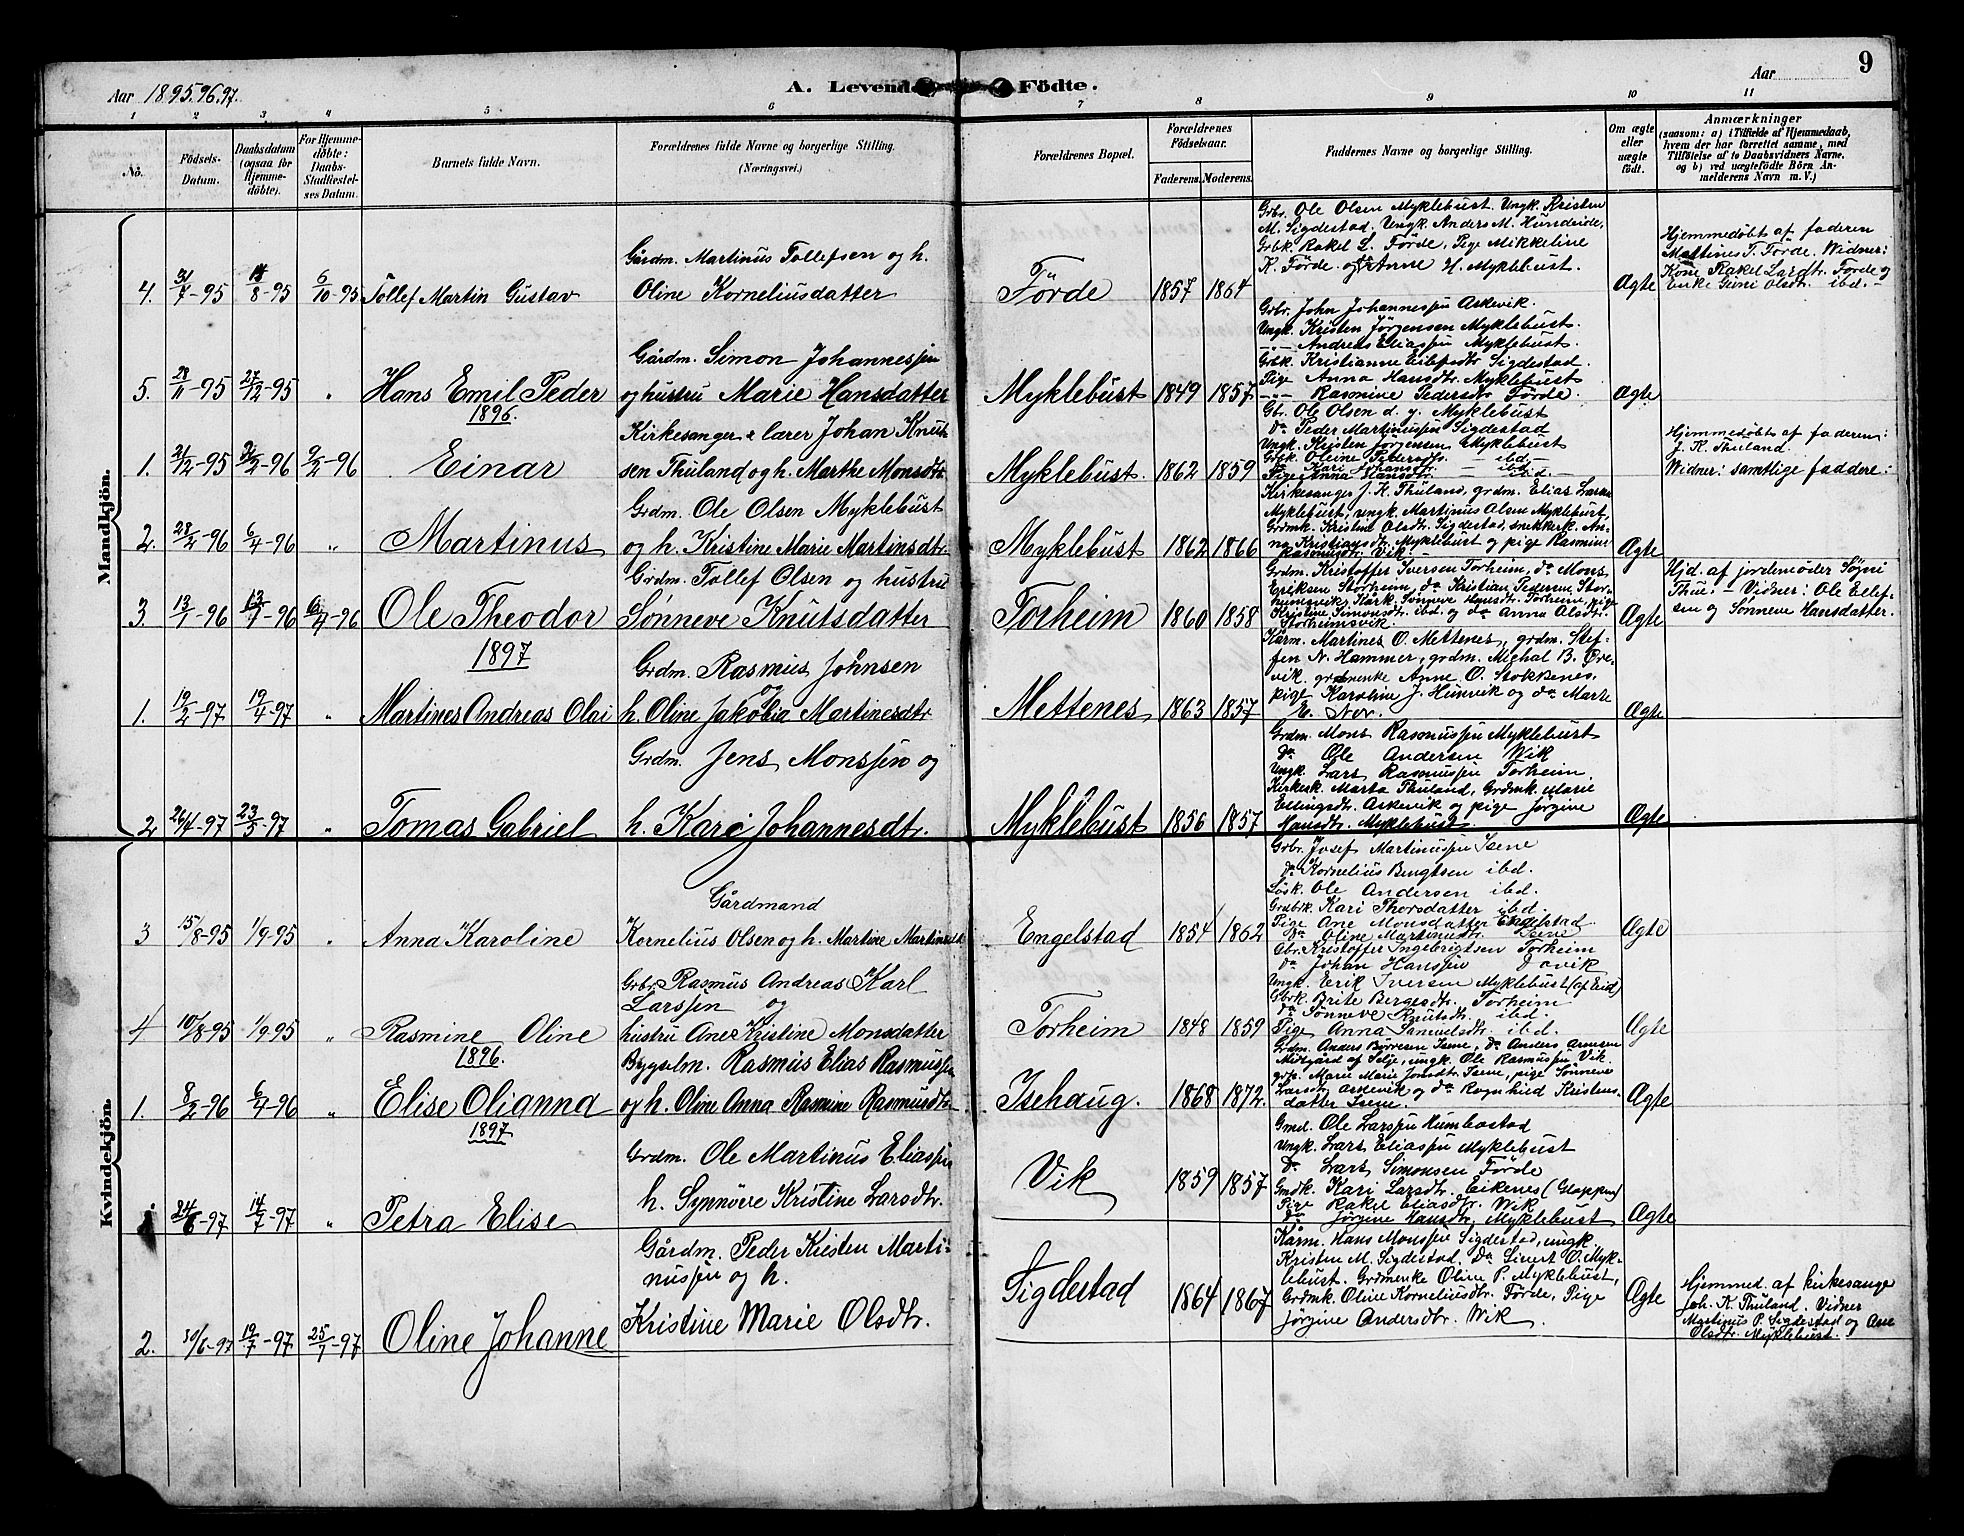 Aar 1895.96.97.
A. Levende Fødte.
Aar
9
1 2 3 4 5 6 7 8 9 10 11
No.
Fødsels-
Datum.
Daabsdatum
(ogsaa for
Hjemme-
døbte).
For Hjemme-
døbte:
Daabs-
Stadfæstel-
ses Datum.
Barnets fulde Navn.
Forældrenes fulde Navne og borgerlige Stilling.
(Næringsvei.)
Forældrenes Bopæl.
Forældrenes
Fødselsaar.
Faderens. Moderens.
Faddernes Navne og borgerlige Stilling.
Om ægte
eller
uægte
født.
Anmærkninger
(saasom: a) i Tilfælde af Hjemmedaab,
hvem der har forrettet samme, med
Tilføielse af to Daabsvidners Navne.
og b) ved uægtefødte Børn An-
melderens Navn m. V.)
Mandkjön.
4. 31/7-95 /8-95 6/10-95 Tollef Martin Gustav
Gårdm. Martinus Tollefsen og h.
Oline Korneliusdatter
Förde 1857 1864
Grbr. Ole Olsen Myklebust. Ungk. Kristen
M. Sigdestad. Ungk. Anders M. Hundeide,
Grbk. Rakel L. Förde, Pige Mikkeline
K. Förde. og Anne H. Myklebust.
Ægte
Hjemmedøbt af faderen
Martines T. Förde. Widner:
Kone Rakel Larsdtr. Förde og
Enke Guni Olsdtr. ibd.
5. 28/11-95 27/12-95 " Hans Emil Peder
Gårdm. Simon Johannesen
og hustru Marie Hansdatter
Myklebust 1849 1857
Grbr. John Johannesen Askevik.
Ungk. Kristen Jörgensen Myklebust.
-..- Andreas Eliassen Myklebust.
Grbk. Kristianne Eilefsdtr Sigdestad.
Pige Anna Hansdtr. Myklebust
-..- Rasmine Pedersdtr Förde.
Ægte
1896.
1. 21/12-95 /2-96 9/2-96 Einar
Kirkesanger & lærer Johan Knut-
sen Thuland og h. Marthe Monsdtr.
Myklebust. 1862 1859
Gbr. Ole Olsen d. y. Myklebust
do Peder Martinussen Sigdestad
Ungk. Kristen Jörgensen Myklebust
Gbk. Oline Pedersdtr. - ibd -
do Kari Johansdtr. - ibd -
Pige Anna Hansdtr. - ibd -
Hjemmedøbt af faderen:
J. K. Thuland.
Widner: samtlige faddere:
2. 28/2-96 6/4-96 " Martinus
Grdm. Ole Olsen Myklebust
og h. Kristine Marie Martinsdtr.
Myklebust 1862 1866
Kirkesanger J. K. Thuland, grdm. Elias Larsen
Myklebust, ungk. Martinus Olsen Myklebust,
Grdmk. Kristine Olsdtr. Sigdestad, snekkerk. An-
na Kristiansdtr. Myklebust og pige Rasmine
Rasmusdtr. Vik -
Ægte
3. 13/1-96 13/-96 6/4-96 Ole Theodor
Grdm. Tollef Olsen og hustru
Sønneve Knutsdatter
Torheim 1860 1858
Grdm. Kristoffer Iversen Torheim, do Mons
Eriksen Storheim, do Kristian Pedersen Stor-
heimsvik, Kårk. Sönneve Hansdtr. Torheim pige
Kristine Simonsdtr. ibd. og do Anna Olsdtr.
Storheimsvik.
Ægte
Hjd. af jordemoder Søgni
Thue. - Vidner: Ole Ellef-
sen og Sønneve Hansdatter.
1897
1. 19/2-97 19/4-97 " Martines Andreas Olai
Grdm. Rasmus Johnsen
og
h. Oline Jakobia Martinesdtr
Mettenes 1863 1857
Kårm. Martines O. Mettenes, grdm. Stef-
fen N. Hammer, grdm. Michal B. Øre-
vik. grdmenke Anne O. Stokkenes,
pige Karoline J. Humvik og do Marte
E. Nor.
Ægte
2. 26/4-97 23/5-97 " Tomas Gabriel
Grdm. Jens Monssen og
h. Kari Johannesdtr.
Myklebust 1856 1857
Grdm. Mons Rasmussen Myklebust
do Ole Andersen Wik
Ungk. Lars Rasmussen Torheim.
Kirkesk. Marta Thuland, Grdmk. Marie
Ellingsdtr. Askevik og pige Jørgine
Hansdtr. Myklebust.
Ægte
Kvindekjön.
3 15/8-95 1/9-95 " Anna Karoline
Gårdmand
Kornelius Olsen og h. Martine Martinsdtr
Engelstad 1854 1862
Grbr. Josef Martinussen Isene
do Kornelius Bengtsen ibd.
Løsk. Ole Andersen ibd.
Grdbrk. Kari Thorsdatter ibd.
Pige Ane Monsdatter Engelstad
do Oline Martinusdtr. Isene
Ægte
4 10/8-95 1/9-95 " Rasmine Oline
Grbr. Rasmus Andreas Karl
Larssen og
hustru Ane Kristine Monsdatter
Torheim 1848 1859
Gbr. Kristoffer Ingebrigtsen Torheim
do Johan Hanssen Davik
Ungk. Erik Iversen Myklebust (af Eid)
Gbrk. Brite Bergesdtr. Torheim
do Sönneve Knutsdtr. ibd.
Pige Anna Samuelsdtr. ibd.
Ægte
1896.
1. 8/2-96 6/4-96 " Elise Olianna
Bygselm. Rasmus Elias Rasmussen
og h. Oline Anna Rasmine Rasmusdtr.
Isehaug. 1868 1872.
Grdm. Anders Börresen Isene, do Anders Arnesen
Midtgård af Selje, ungk. Ole Rasmussen Vik.
grk. Marie Marie Jonsdtr. Isene, pige Sönneve
Larsdtr. Askevik og do Ragnhild Kristens-
datter Isene.
Ægte
1897.
1 24/6-97 14/7-97 " Petra Elise
Grdm. Ole Martinus Eliassen
h. Synnöve Kristine Larsdtr.
Vik 1859 1857
Gmd. Ole Larssen Humbostad
Ungk. Lars Eliassen Myklebust
do Lars Simonsen Förde
Gmdk. Kari Larsdtr. Eikenes (Gloppen)
Pige Rakel Eliasdtr. Wik
do Jörgine Hansdtr. Myklebust
Ægte
2. 30/6-97 19/7-97 25/7-97 Oline Johanne
Gårdm. Peder Kristen Marti-
nussen og h.
Kristine Marie Olsdtr.
Sigdestad 1864 1867
Kårm. Hans Monssen Sigdestad, ungk.
Kristen M. Sigdestad. do Sivert O. Myk-
lebust. Grdmenke Oline P. Myklebust,
Grdmk. Oline Korneliusdtr. Förde, Pige
Jörgine Andersdtr. Wik.
Ægte
Hjemmed. af kirkesanger
Joh. K. Thuland. Vidner
Martinus P. Sigdestad og Ane
Olsdtr. Myklebust.